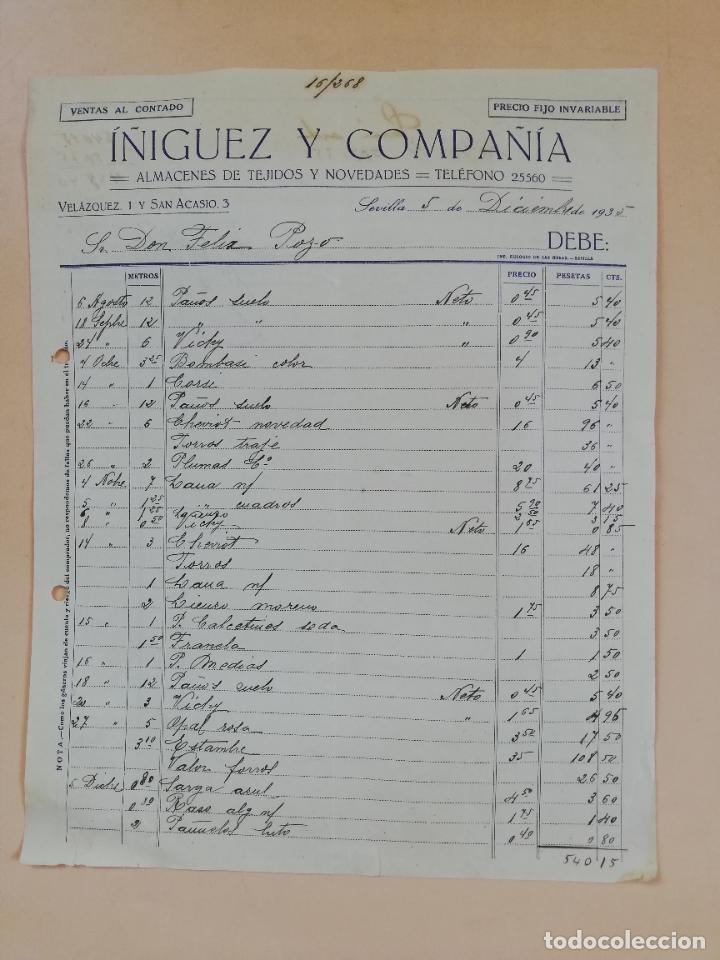 16/268
VENTAS AL CONTADO
PRECIO FIJO INVARIABLE
ÍÑIGUEZ Y COMPAÑÍA
ALMACENES DE TEJIDOS Y NOVEDADES = TELÉFONO 25560
VELÁZQUEZ, 1 Y SAN ACASIO, 3
Sevilla 5 de Diciembre de 1935
Sr. Don Felix Pozo DEBE:
IMP. EULOGIO DE LAS HERAS.-SEVILLA
METROS PRECIO PESETAS CTS.
6 Agosto 12 Paños suelo Neto 0 45 5 40
18 Sepbre 12 " " " 0 45 5 40
24 " 6 Vichy " 0 90 5 40
4 Ocbre 3 25 Bombasi color 4 13 "
14 " 1 Corse 6 50
16 " 12 Paños suelo Neto 0 45 5 40
22 " 6 Cheviot novedad 16 96 "
Forros traje 36 "
26 " 2 Plumas Cª 20 40 "
4 Nobre 7 Lana n/ 8 75 61 25
5 " 1 25 " cuadros 5 90 7 40
6 " 1 25 3 15
8 " 0 50 Vichy Neto 1 65 0 85
14 " 3 Cheviot 16 48 "
Forros 18 "
1 Lana n/ 8 75
2 Lienzo moreno 1 75 3 50
15 " 1 P. Calcetines seda 3 50
1 50 Franela 1 1 50
16 " 1 P. Medias 2 50
18 " 12 Paños suelo Neto 0 45 5 40
20 " 3 Vichy " 1 65 4 95
27 " 5 Opal rosa 3 50 17 50
3 10 Estambre 35 108 50
Valor forros 26 50
5 Dicbre 0 80 Sarga azul 4 50 3 60
Raso alg n/ 1 75 1 40
2 Pañuelos luto 0 40 0 80
540 15
NOTA.—Como los géneros viajan de cuenta y riesgo del comprador, no respondemos de faltas que puedan haber en el
todocoleccion
todocoleccion.net